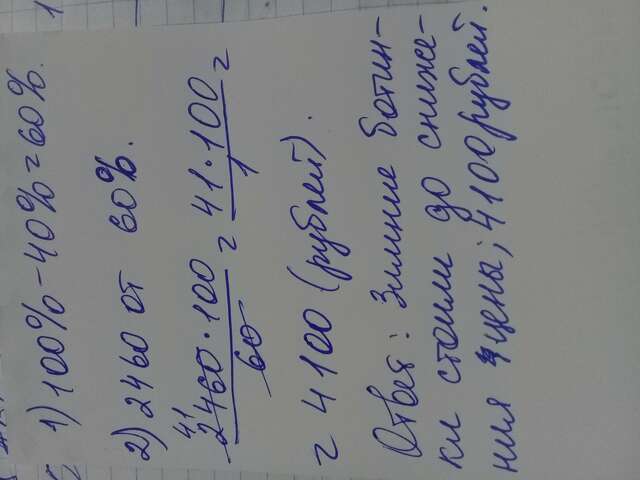 1) 100% - 40% = 60%.
2) 2460 от 60%.
41
2460 · 100 / 60 = 41 · 100 / 1 =
= 4100 (рублей).
Ответ: Зимние ботин-
ки стоили до сниже-
ния цены; 4100 рублей.